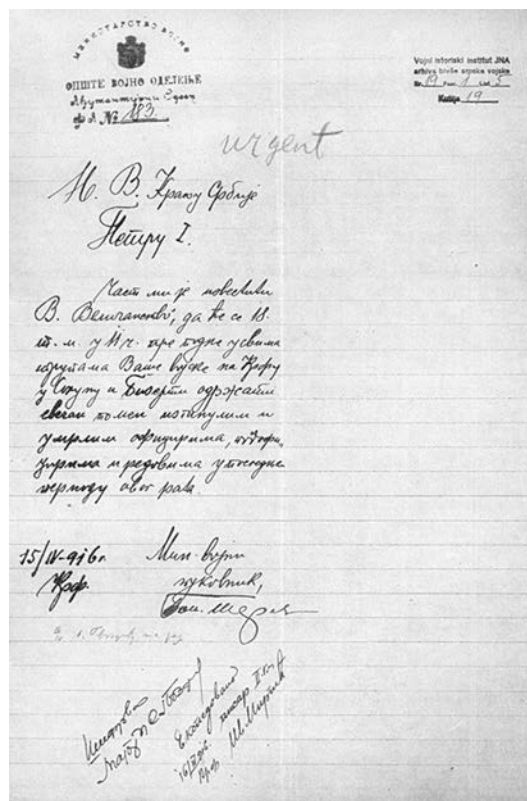 МИНИСТАРСТВО ВОЈНО
ОПШТЕ ВОЈНО ОДЕЉЕЊЕ
Ађутантурски Одсек
ф А. № 183.
Vojni istoriski institut JNA
arhiva bivše srpske vojske
Br. 19 1 5
Kutija 19
urgent
Њ. В. Краљу Србије
Петру I.
Част ми је известити
В. Величанство, да ће се 18.
т. м. у 11 ч. пре подне у свима
трупама Ваше војске на Крфу
у Солуну и Бизерти одржати
свечан помен изгинулим и
умрлим официрима, подофи-
цирима и редовима у последњем
периоду овог рата.
15/IV-916 г.
Крф.
Мин. војни
пуковник,
Шифровао
Експедовано
16/IV 916. писар II кл.
Крф